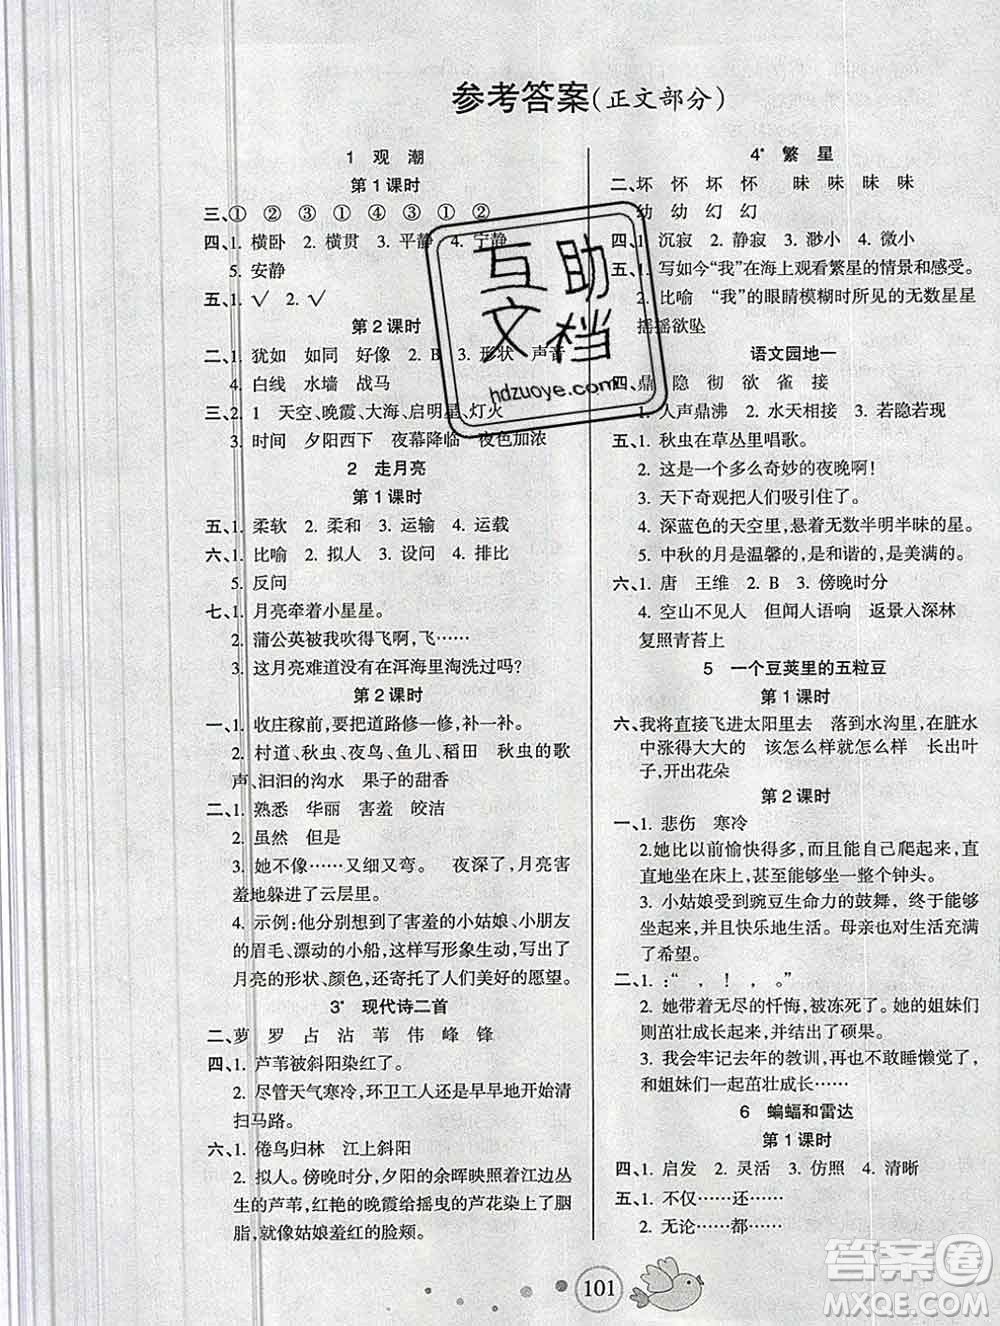 参考答案(正文部分)
1 观 潮
第1课时
三、① ② ③ ① ④ ③ ① ②
四、1. 横卧 2. 横贯 3. 平静 4. 宁静
5. 安静
五、1. √ 2. √
第2课时
二、1. 犹如 如同 好像 2. B 3. 形状 声音
4. 白线 水墙 战马
三、2. 1 天空、晚霞、大海、启明星、灯火
3. 时间 夕阳西下 夜幕降临 夜色加浓
2 走月亮
第1课时
五、1. 柔软 2. 柔和 3. 运输 4. 运载
六、1. 比喻 2. 拟人 3. 设问 4. 排比
5. 反问
七、1. 月亮牵着小星星。
2. 蒲公英被我吹得飞啊,飞……
3. 这月亮难道没有在洱海里淘洗过吗?
第2课时
一、1. 收庄稼前,要把道路修一修,补一补。
2. 村道、秋虫、夜鸟、鱼儿、稻田 秋虫的歌
声、汩汩的沟水 果子的甜香
二、1. 熟悉 华丽 害羞 皎洁
2. 虽然 但是
3. 她不像……又细又弯。 夜深了,月亮害
羞地躲进了云层里。
4. 示例:他分别想到了害羞的小姑娘、小朋友
的眉毛、漂动的小船,这样写形象生动,写出了
月亮的形状、颜色,还寄托了人们美好的愿望。
3* 现代诗二首
二、萝 罗 占 沾 苇 伟 峰 锋
四、1. 芦苇被斜阳染红了。
2. 尽管天气寒冷,环卫工人还是早早地开始清
扫马路。
六、1. 倦鸟归林 江上斜阳
2. 拟人。傍晚时分,夕阳的余晖映照着江边丛
生的芦苇,红艳的晚霞给摇曳的芦花染上了胭
脂,就像姑娘羞红的脸颊。
4* 繁 星
二、坏 怀 坏 怀 昧 味 昧 味
幼 幼 幻 幻
四、1. 沉寂 2. 静寂 3. 渺小 4. 微小
五、1. 写如今“我”在海上观看繁星的情景和感受。
2. 比喻 “我”的眼睛模糊时所见的无数星星
摇摇欲坠
语文园地一
四、鼎 隐 彻 欲 雀 接
1. 人声鼎沸 2. 水天相接 3. 若隐若现
五、1. 秋虫在草丛里唱歌。
2. 这是一个多么奇妙的夜晚啊!
3. 天下奇观把人们吸引住了。
4. 深蓝色的天空里,悬着无数半明半昧的星。
5. 中秋的月是温馨的,是和谐的,是美满的。
六、1. 唐 王维 2. B 3. 傍晚时分
4. 空山不见人 但闻人语响 返景入深林
复照青苔上
5 一个豆荚里的五粒豆
第1课时
六、我将直接飞进太阳里去 落到水沟里,在脏水
中涨得大大的 该怎么样就怎么样 长出叶
子,开出花朵
第2课时
一、1. 悲伤 寒冷
2.她比以前愉快得多,而且能自己爬起来,直
直地坐在床上,甚至能够坐一整个钟头。
3. 小姑娘受到豌豆生命力的鼓舞，终于能够坐
起来,并且快乐地生活。母亲也对生活充满
了希望。
二、1.:“ , ! , 。”
2. 她带着无尽的忏悔,被冻死了。她的姐妹们
则茁壮成长起来,结出了硕果。
3. 我会牢记去年的教训,再也不敢睡懒觉了,
和姐妹们一起茁壮成长……
6 蝙蝠和雷达
第1课时
四、1. 启发 2. 灵活 3. 仿照 4. 清晰
五、1. 不仅……还……
2. 无论……都……
101
互助
文档
hdzuoye.com
答案圈
MXQE.COM